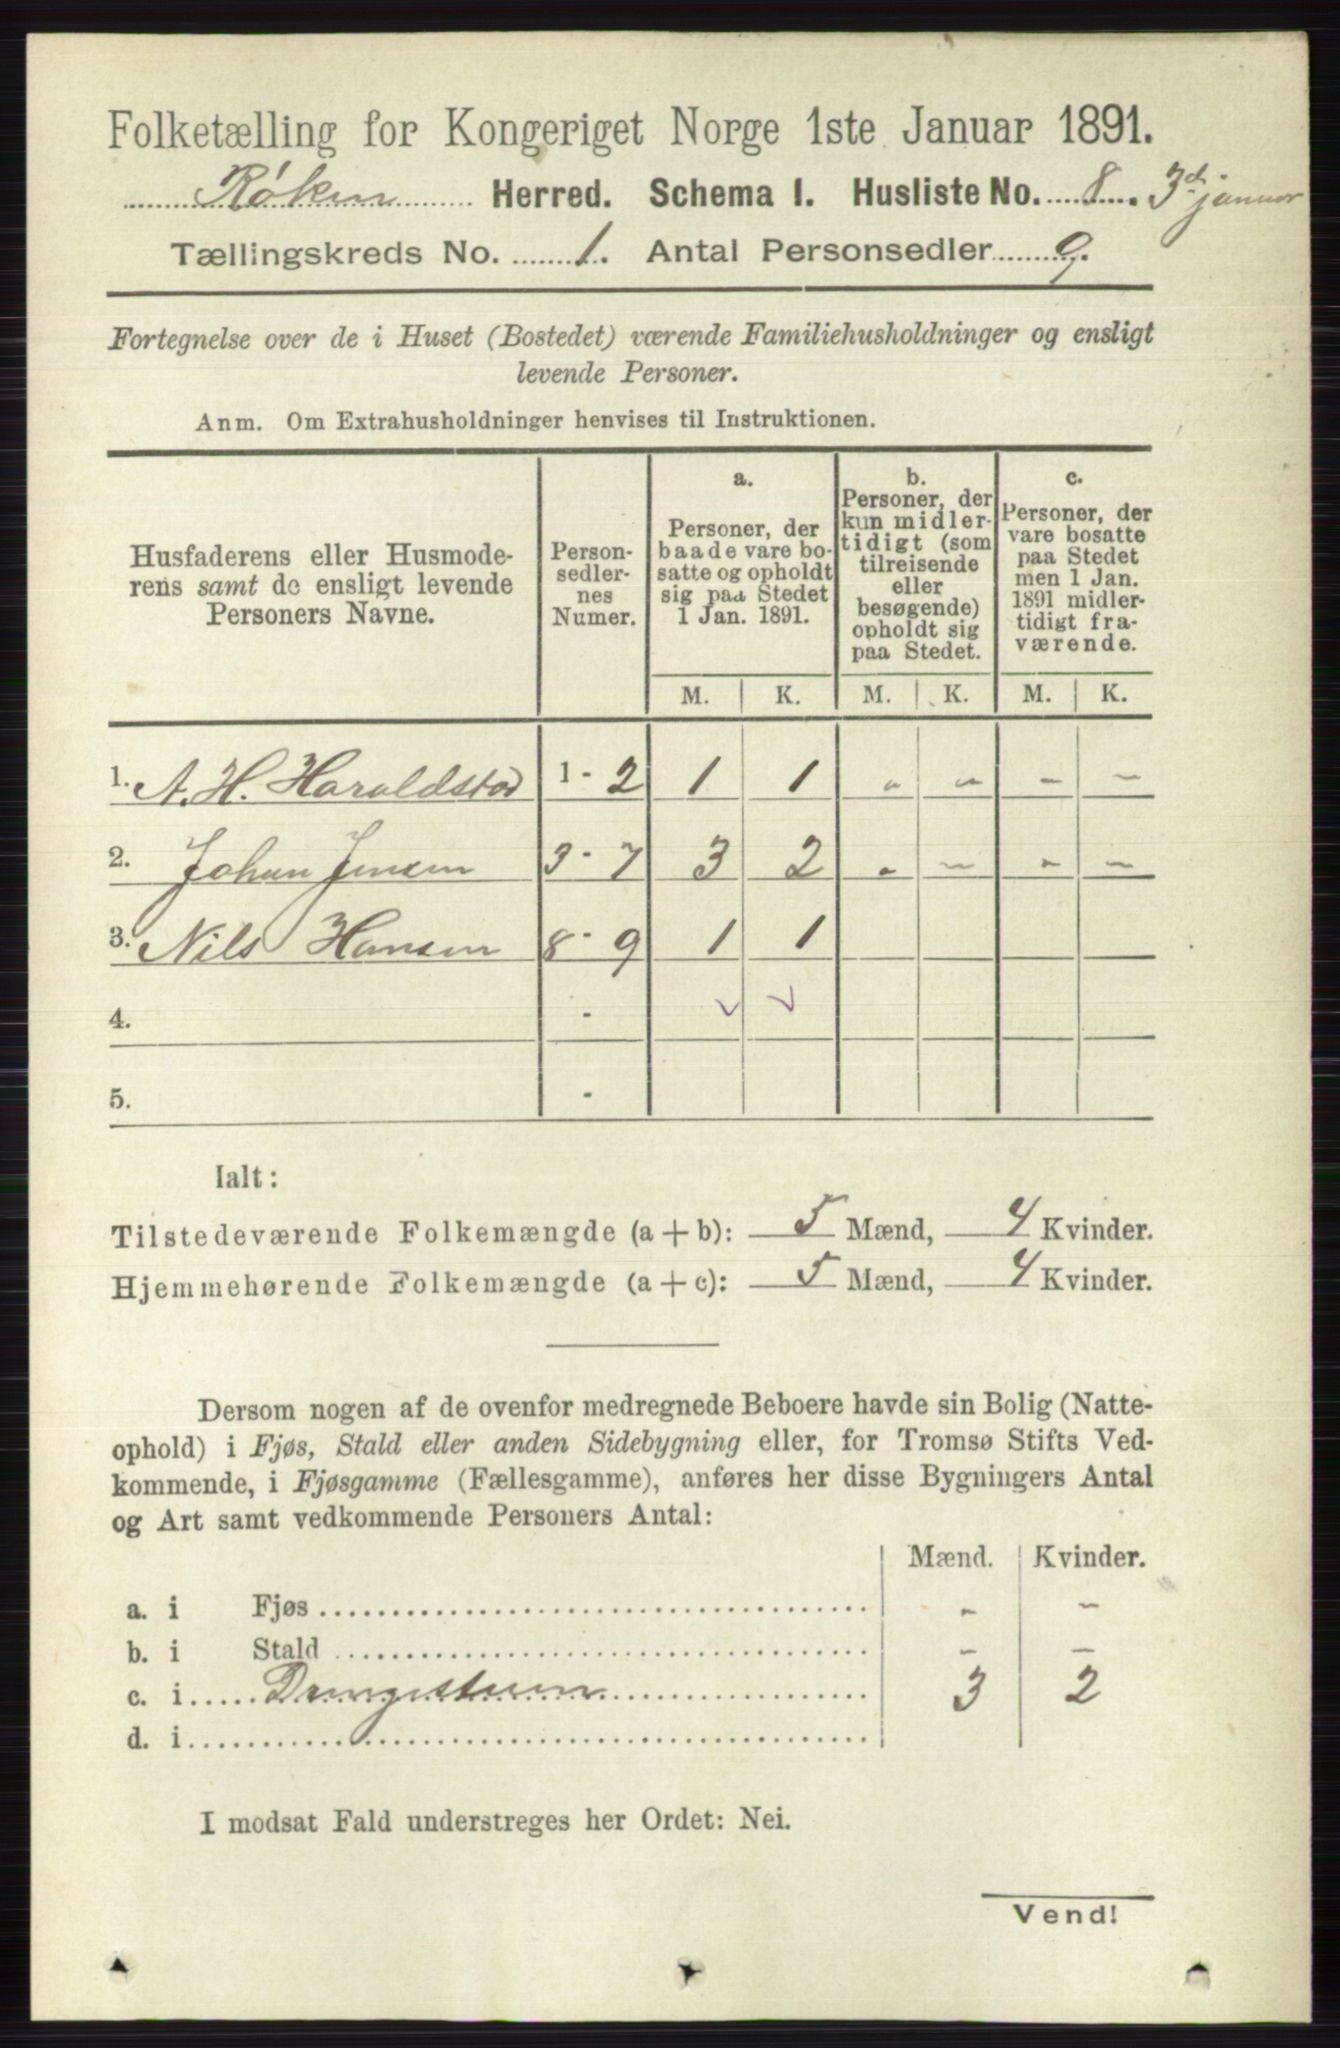 Folketælling for Kongeriget Norge 1ste Januar 1891.
Røken Herred. Schema I. Husliste No. 8. 3d januar
Tællingskreds No. 1. Antal Personsedler 9.
Fortegnelse over de i Huset (Bostedet) værende Familiehusholdninger og ensligt
levende Personer.
Anm. Om Extrahusholdninger henvises til Instruktionen.
Husfaderens eller Husmode-
rens samt de ensligt levende
Personers Navne.
Person-
sedler-
nes
Numer.
a.
Personer, der
baade vare bo-
satte og opholdt
sig paa Stedet
1 Jan. 1891.
b.
Personer, der
kun midler-
tidigt (som
tilreisende
eller
besøgende)
opholdt sig
paa Stedet.
c.
Personer, der
vare bosatte
paa Stedet
men 1 Jan.
1891 midler-
tidigt fra-
værende.
M. K. M. K. M. K.
1. A. H. Haraldstad 1 - 2 1 1 - - - -
2. Johan Jensen 3 - 7 3 2 - - - -
3. Nils Hansen 8 - 9 1 1
4. -
5. -
Ialt:
Tilstedeværende Folkemængde (a + b): 5 Mænd, 4 Kvinder.
Hjemmehørende Folkemængde (a + c): 5 Mænd, 4 Kvinder.
Dersom nogen af de ovenfor medregnede Beboere havde sin Bolig (Natte-
ophold) i Fjøs, Stald eller anden Sidebygning eller, for Tromsø Stifts Ved-
kommende, i Fjøsgamme (Fællesgamme), anføres her disse Bygningers Antal
og Art samt vedkommende Personers Antal:
Mænd. Kvinder.
a. i Fjøs - -
b. i Stald - -
c. i 3 2
d. i
I modsat Fald understreges her Ordet: Nei.
Vend!